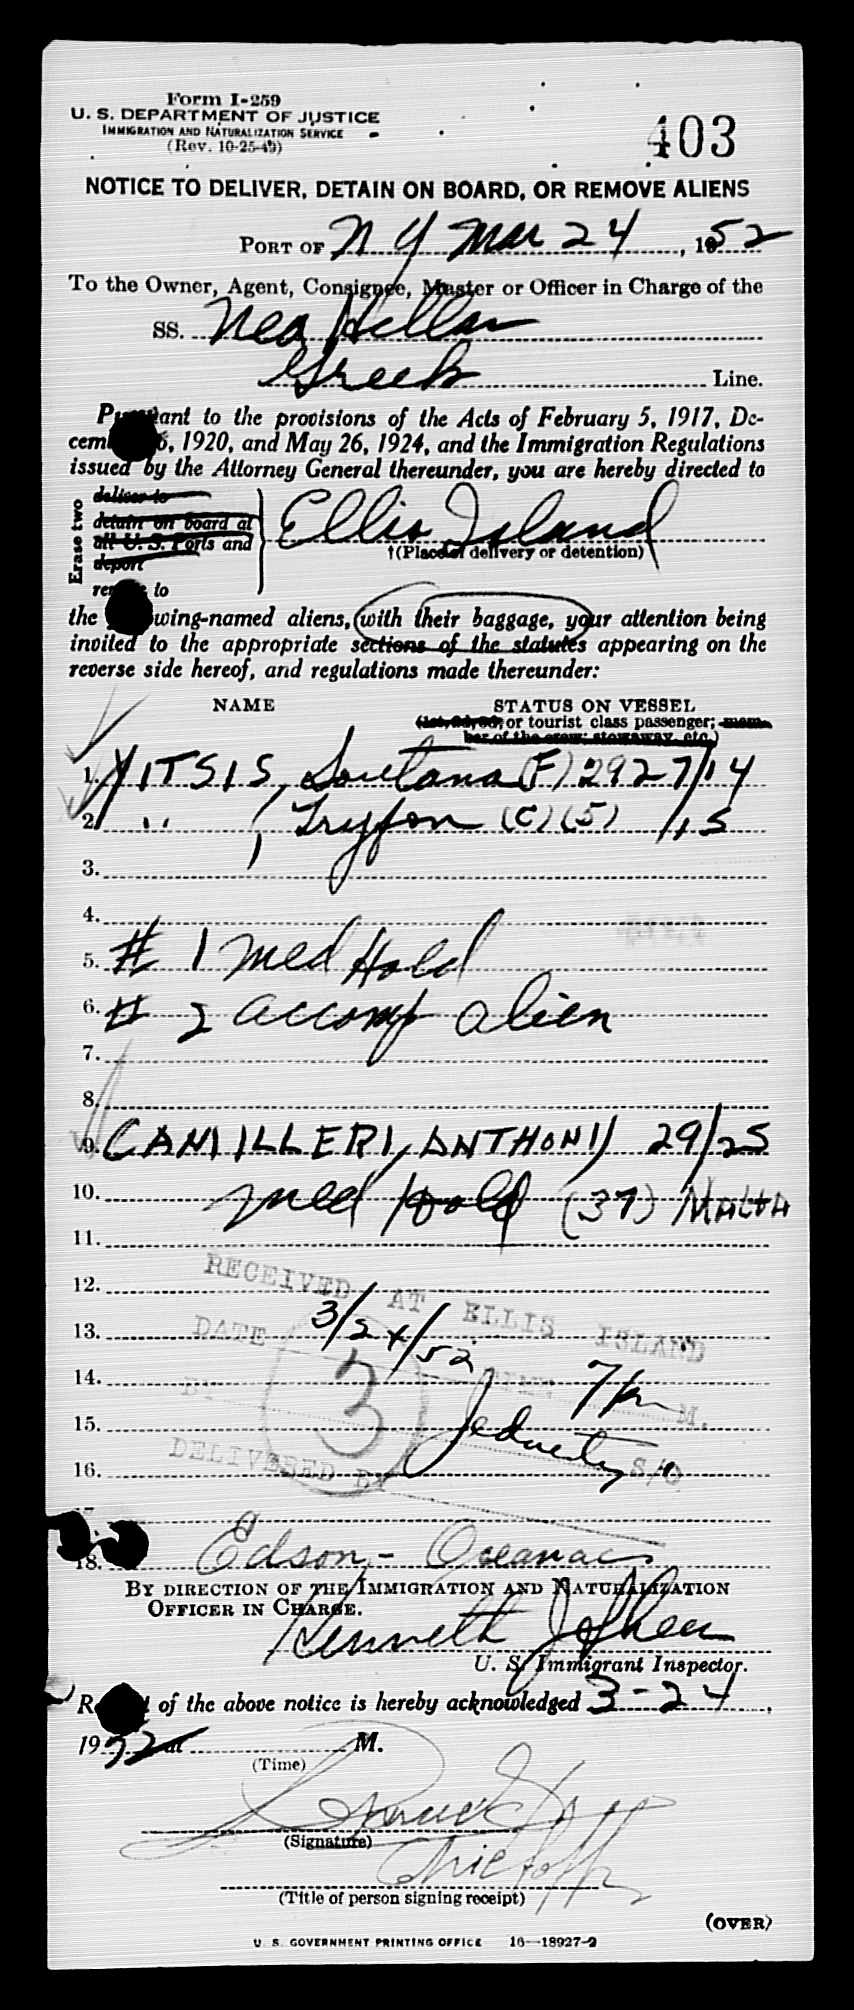 Form I-259
U. S. DEPARTMENT OF JUSTICE
IMMIGRATION AND NATURALIZATION SERVICE
(Rev. 10-25-49)
403
NOTICE TO DELIVER, DETAIN ON BOARD, OR REMOVE ALIENS
PORT OF N Y Mar 24, 1952
To the Owner, Agent, Consignee, Master or Officer in Charge of the
SS. Nea Hellas
Greek Line.
Pursuant to the provisions of the Acts of February 5, 1917, De-
cember 26, 1920, and May 26, 1924, and the Immigration Regulations
issued by the Attorney General thereunder, you are hereby directed to
Erase two
deliver to
detain on board at
all U. S. Ports and
deport
remove to
Ellis Island
†(Place of delivery or detention)
the following-named aliens, with their baggage, your attention being
invited to the appropriate sections of the statutes appearing on the
reverse side hereof, and regulations made thereunder:
NAME STATUS ON VESSEL
(1st, 2d, 3d, or tourist class passenger; mem-
ber of the crew; stowaway, etc.)
1. YITSIS, Soultana (F) 29 27/14
2. " , Tryfon (C) (5) /15
3.
4.
5. # 1 med Hold
6. # 2 accomp alien
7.
8.
9. CAMILLERI, ANTHONY 29/25
10. med Hold (37) MALTA
11.
12. RECEIVED AT ELLIS ISLAND
13. DATE 3/24/52
14. BY TIME 7 pm M.
15. 3
16. DELIVERED BY S/O
18. Edson -
BY DIRECTION OF THE IMMIGRATION AND NATURALIZATION
OFFICER IN CHARGE.
Kenneth J Shea
U. S. Immigrant Inspector.
Receipt of the above notice is hereby acknowledged 3-24,
1952 at M.
(Time)
(Signature)
Chief Off
(Title of person signing receipt)
(OVER)
U. S. GOVERNMENT PRINTING OFFICE 16—18927-2